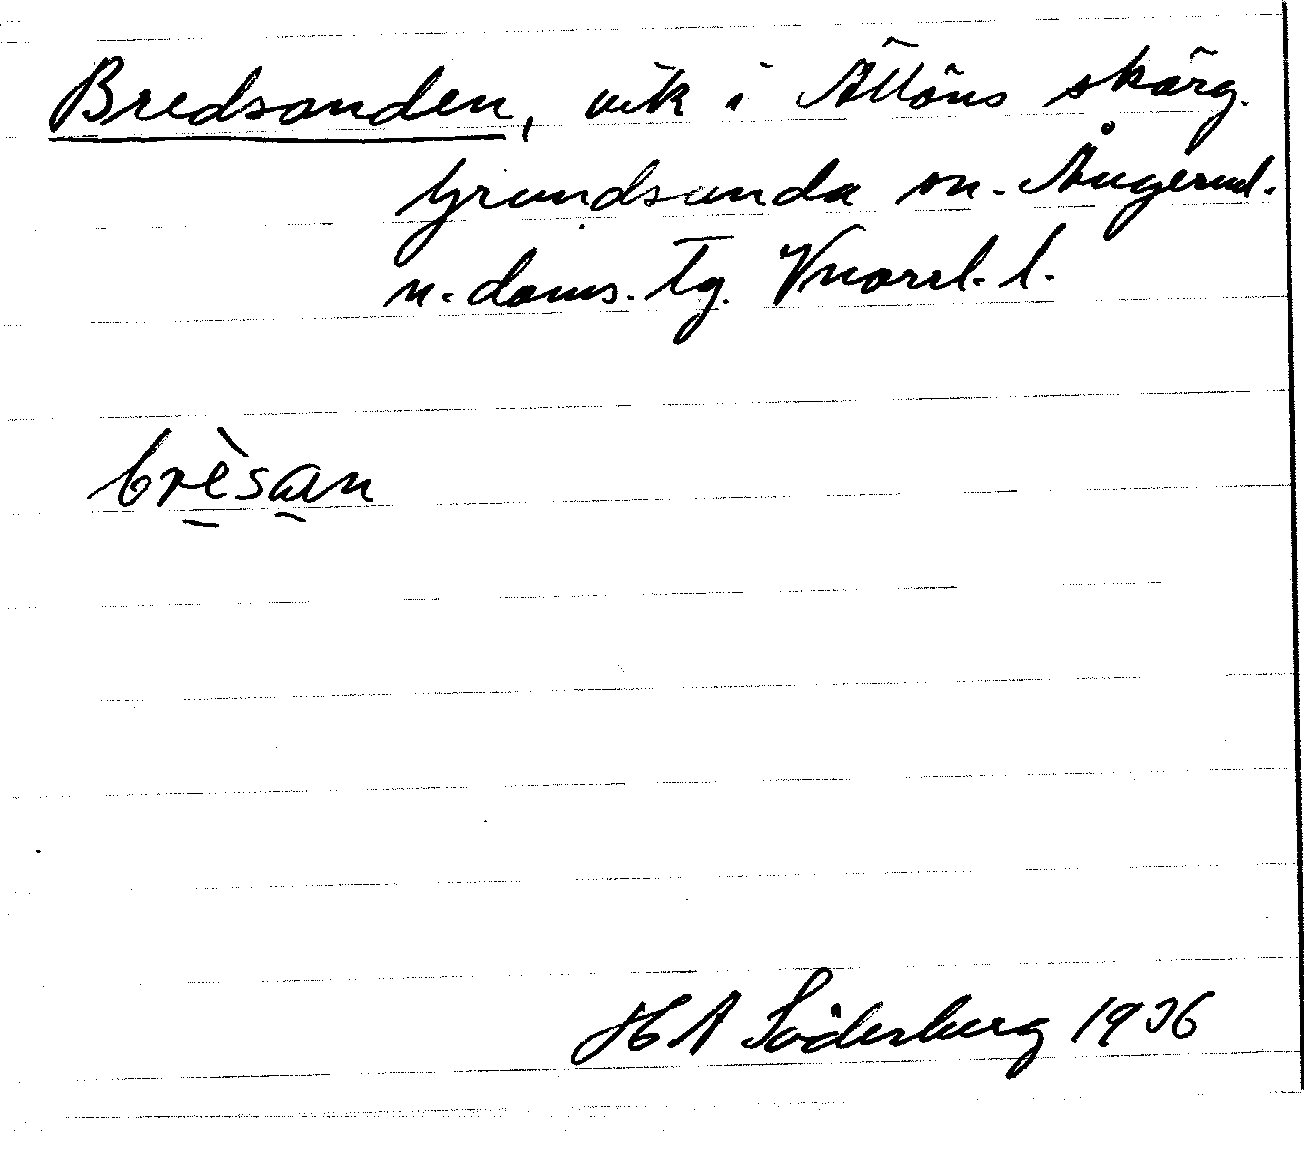 Bredsanden, vik i Ållöns skärg.
Grundsunda sn. Ångerml.
n. doms. Tg. Vnorrl. l.
brèsan
H A Söderberg 1936